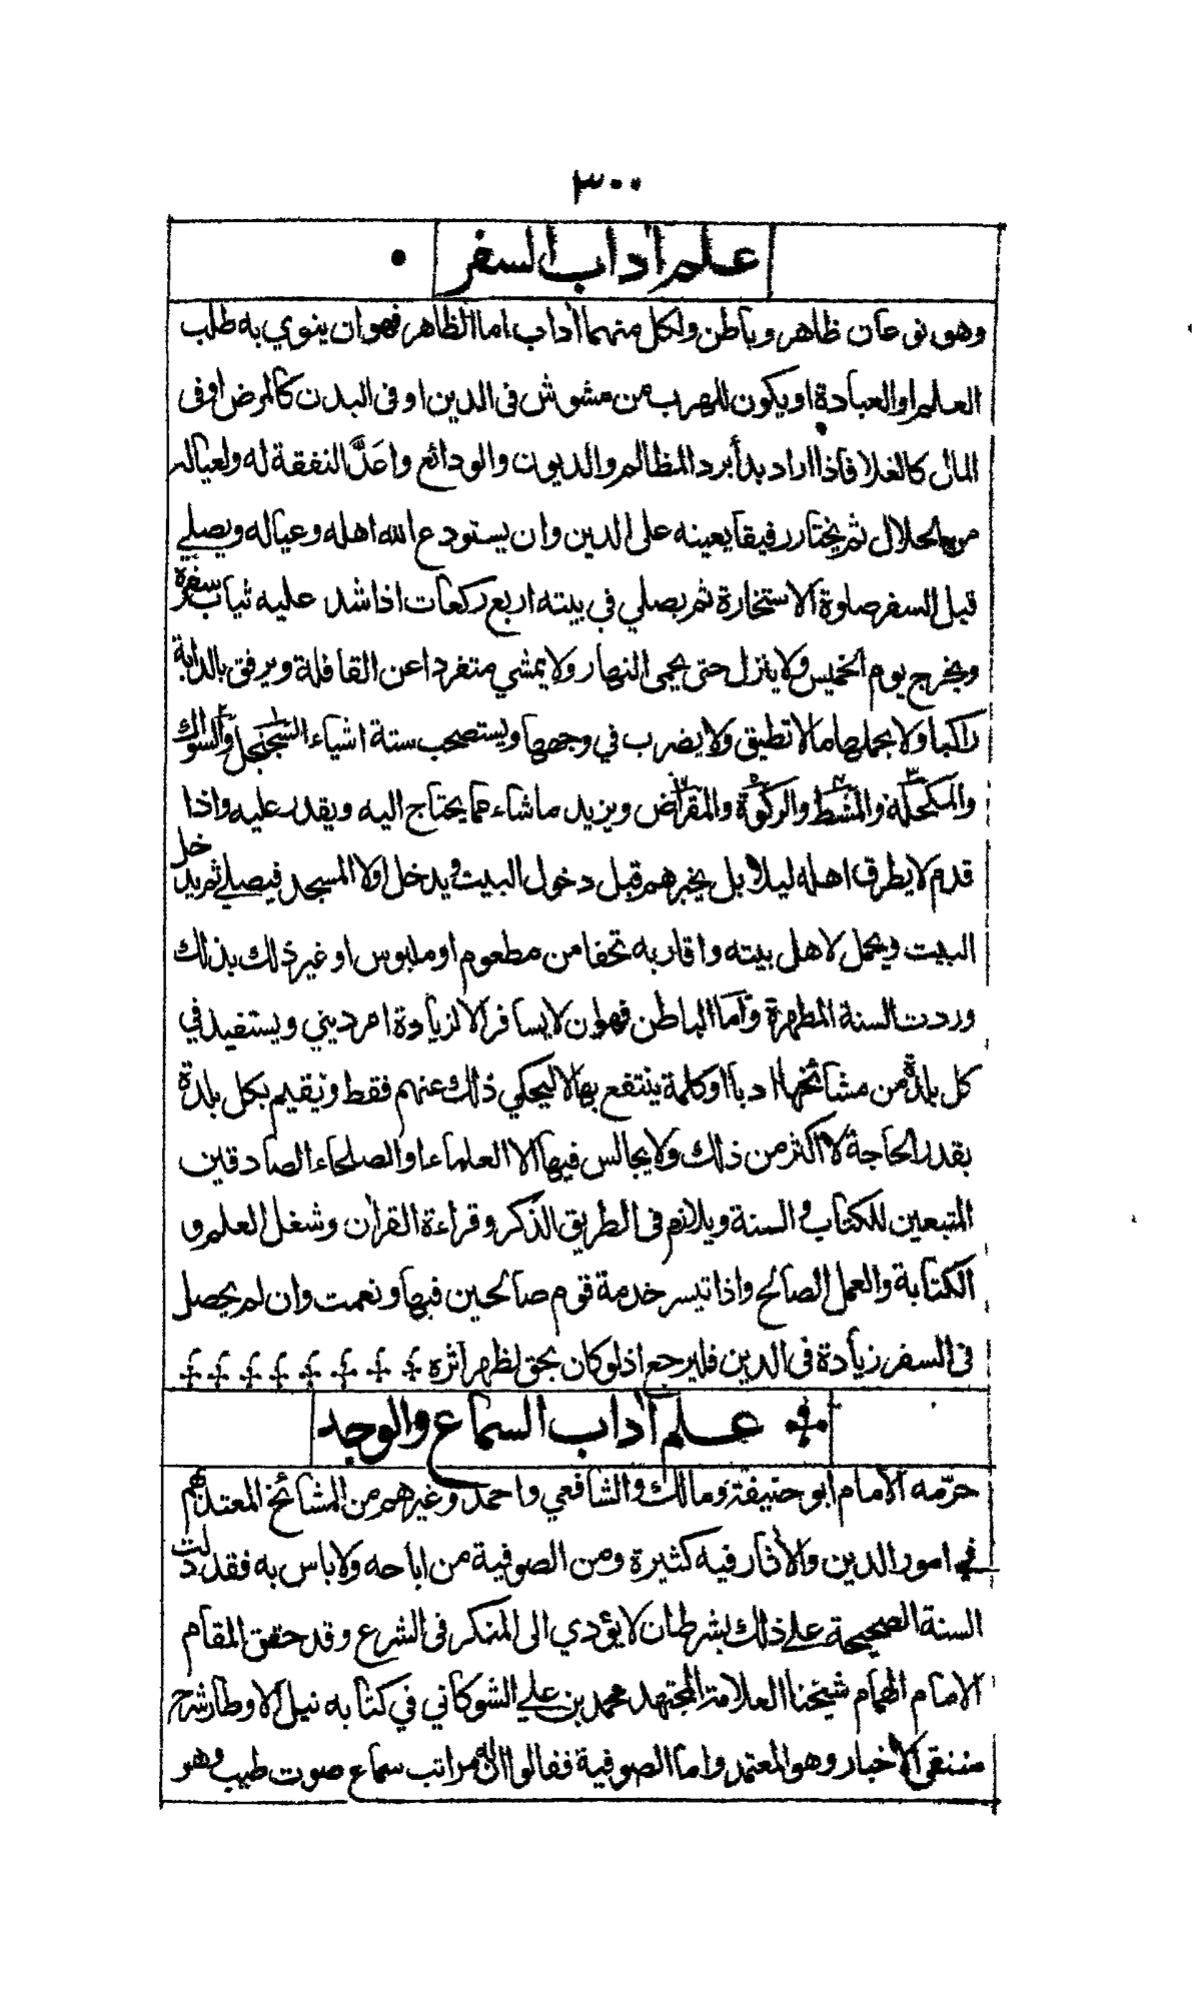 ٣٠٠
علم آداب السفر
وهو نوعان ظاهر وباطن ولكل منهما آداب اما الظاهر فهو ان ينوي به طلب
العلم او العبادة او يكون للهرب من مشوش فى الدين او فى البدن كالمرض او فى
المال كالغلا فاذا اراد بدأ برد المظالم والديون والودائع واعَدَّ النفقة له ولعياله
من الحلال ثم يختار رفيقا يعينه على الدين وان يستودع الله اهله وعياله ويصلي
قبل السفر صلوة الاستخارة ثم يصلي فى بيته اربع ركعات اذا شد عليه ثياب سفره
ويخرج يوم الخميس ولا ينزل حتى يحمى النهار ولا يمشي متفردا عن القافلة ويرفق بالدابة
راكبا ولا يحملها ما لا تطيق ولا يضرب في وجهها ويستصحب ستة اشياء السجنجل والسواك
والمكحلة والمشط والركوة والمقراض ويزيد ما شاء مما يحتاج اليه ويقدر عليه واذا
قدم لا يطرق اهله ليلا بل يخبرهم قبل دخول البيت ويدخل اولا المسجد فيصلي ثم يدخل
البيت ويحمل لاهل بيته واقاربه تحفا من مطعوم او ملبوس او غير ذلك بذلك
وردت السنة المطهرة وأما الباطن فهو ان لا يسافر الا لزيادة امر ديني ويستفيد في
كل بلدة من مشائخها ادبا او كلمة ينتفع بها لا ليحكي ذلك عنهم فقط ويقيم بكل بلدة
بقدر الحاجة لا اكثر من ذلك ولا يجالس فيها الا العلماء او الصلحاء الصادقين
المتبعين للكتاب والسنة ويلازم فى الطريق الذكر وقراءة القرآن وشغل العلم و
الكتابة والعمل الصالح واذا تيسر خدمة قوم صالحين فبها ونعمت وان لم يحصل
فى السفر زيادة فى الدين فليرجع اذ لو كان بحق لظهر اثره
علم آداب السماع والوجد
حرّمه الامام ابو حنيفة ومالك والشافعي واحمد وغيرهم من المشائخ المعتد بهم
في امور الدين والآثار فيه كثيرة ومن الصوفية من اباحه ولا باس به فقد دلت
السنة الصحيحة على ذلك بشرط ان لا يؤدي الى المنكر فى الشرع وقد حقق المقام
الامام الهمام شيخنا العلامة المجتهد محمد بن علي الشوكاني في كتابه نيل الاوطار شرح
منتقى الاخبار وهو المعتمد واما الصوفية فقالوا ان مراتب سماع صوت طيب وهو